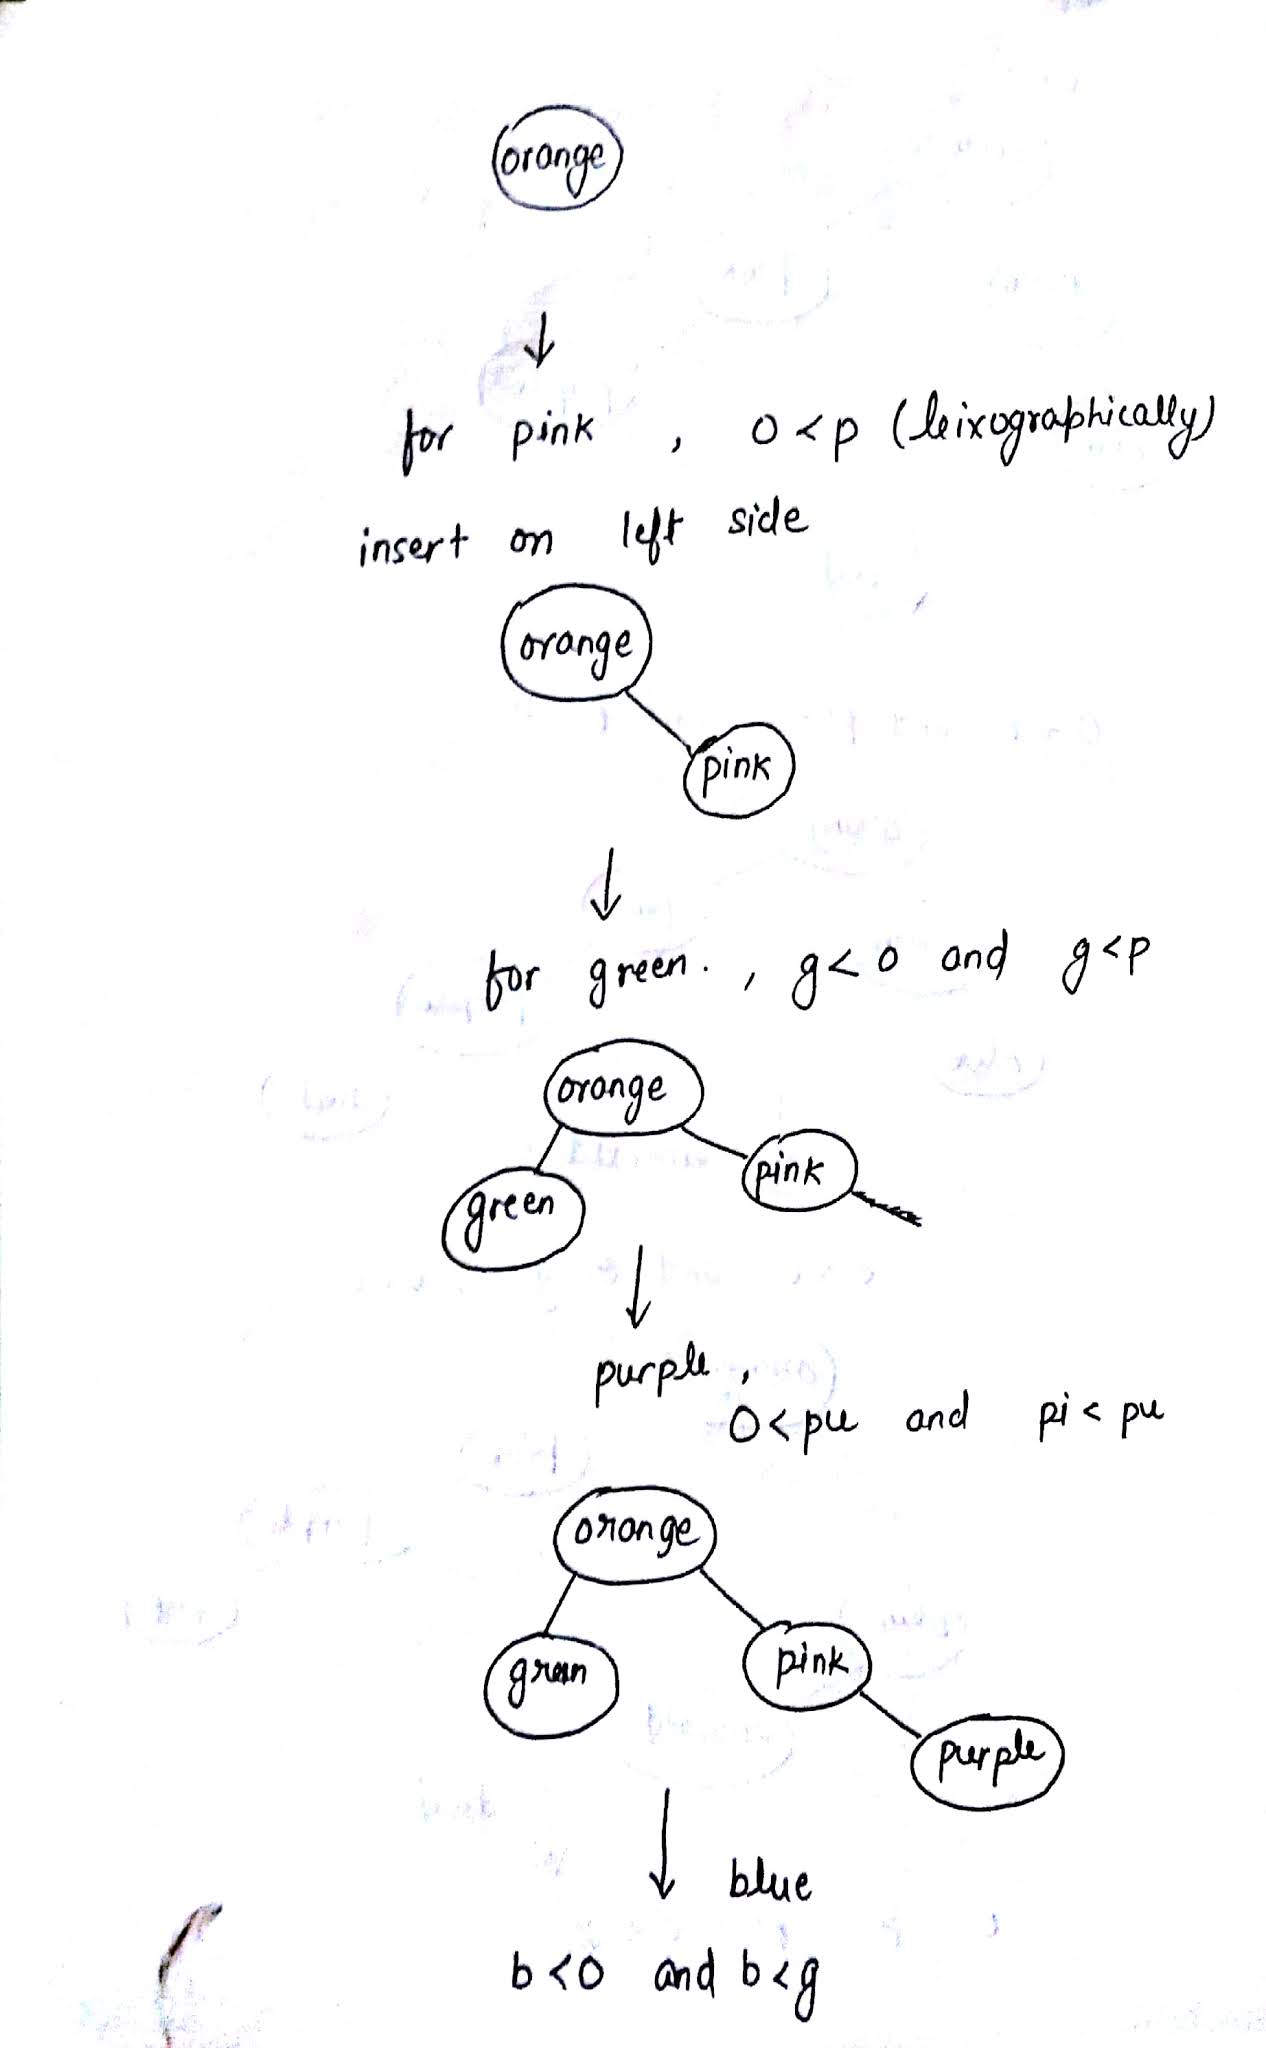 orange
for pink , o < p (leixographically)
insert on left side
orange
pink
for green. , g < o and g < p
orange
pink
green
purple ,
o < pu and pi < pu
orange
green
pink
purple
blue
b < o and b < g